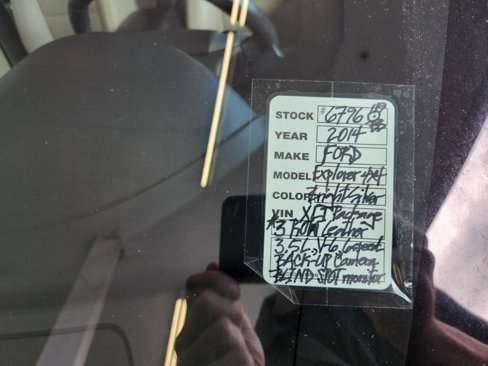 STOCK #6796
YEAR 2014
MAKE FORD
MODEL Explorer 4x4
COLOR Bright Silver
VIN XLT Package
*3 ROW Leather
3.5L, V-6, 6 speed
BACK-UP Camera
BLIND SPOT monitor